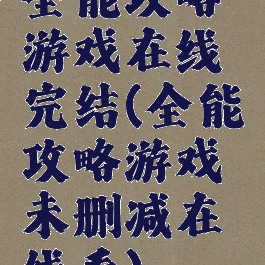 全能攻略
游戏在线
完结(全能
攻略游戏
未删减在
线看)